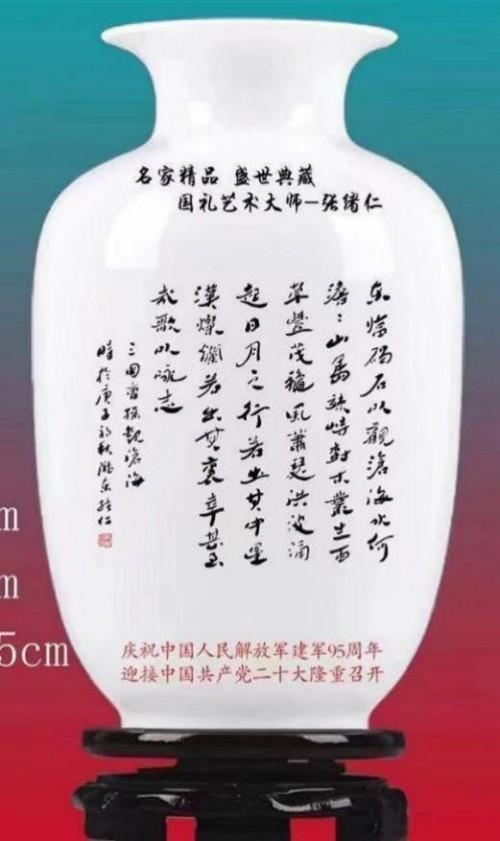 名家精品 盛世典藏
国礼艺术大师—张绪仁
东臨碣石以觀滄海水何
澹〻山島竦峙樹木叢生百
草豐茂穐風蕭瑟洪波涌
起日月之行若出其中星
漢燦爛若出其裏幸甚至
哉歌以咏志
三国曹操觀滄海
時於庚子初秋隴东緒仁
m
m
5cm
庆祝中国人民解放军建军95周年
迎接中国共产党二十大隆重召开